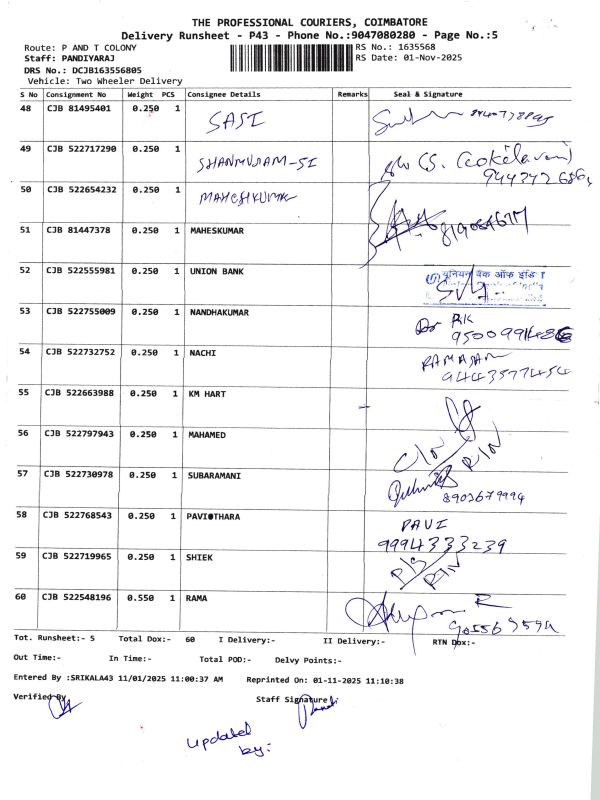 THE PROFESSIONAL COURIERS, COIMBATORE
Delivery Runsheet - P43 - Phone No.:9047080280 - Page No.:5
Route: P AND T COLONY RS No.: 1635568
Staff: PANDIYARAJ RS Date: 01-Nov-2025
DRS No.: DCJB163556805
Vehicle: Two Wheeler Delivery
S No Consignment No Weight PCS Consignee Details Remarks Seal & Signature
48 CJB 81495401 0.250 1 SASI
49 CJB 522717290 0.250 1 SHANMUGAM-SI
50 CJB 522654232 0.250 1 MAHESHKUMAR
51 CJB 81447378 0.250 1 MAHESKUMAR
52 CJB 522555981 0.250 1 UNION BANK यूनियन बैंक ऑफ इंडि
53 CJB 522755009 0.250 1 NANDHAKUMAR RK
54 CJB 522732752 0.250 1 NACHI
9443577454
55 CJB 522663988 0.250 1 KM HART
56 CJB 522797943 0.250 1 MAHAMED
57 CJB 522730978 0.250 1 SUBARAMANI
8903679994
58 CJB 522768543 0.250 1 PAVITHARA PAVI
9994333239
59 CJB 522719965 0.250 1 SHIEK
60 CJB 522548196 0.550 1 RAMA
Tot. Runsheet:- 5 Total Dox:- 60 I Delivery:- II Delivery:- RTN Dox:-
Out Time:- In Time:- Total POD:- Delvy Points:-
Entered By :SRIKALA43 11/01/2025 11:00:37 AM Reprinted On: 01-11-2025 11:10:38
Verified By Staff Signature
Updated
by: